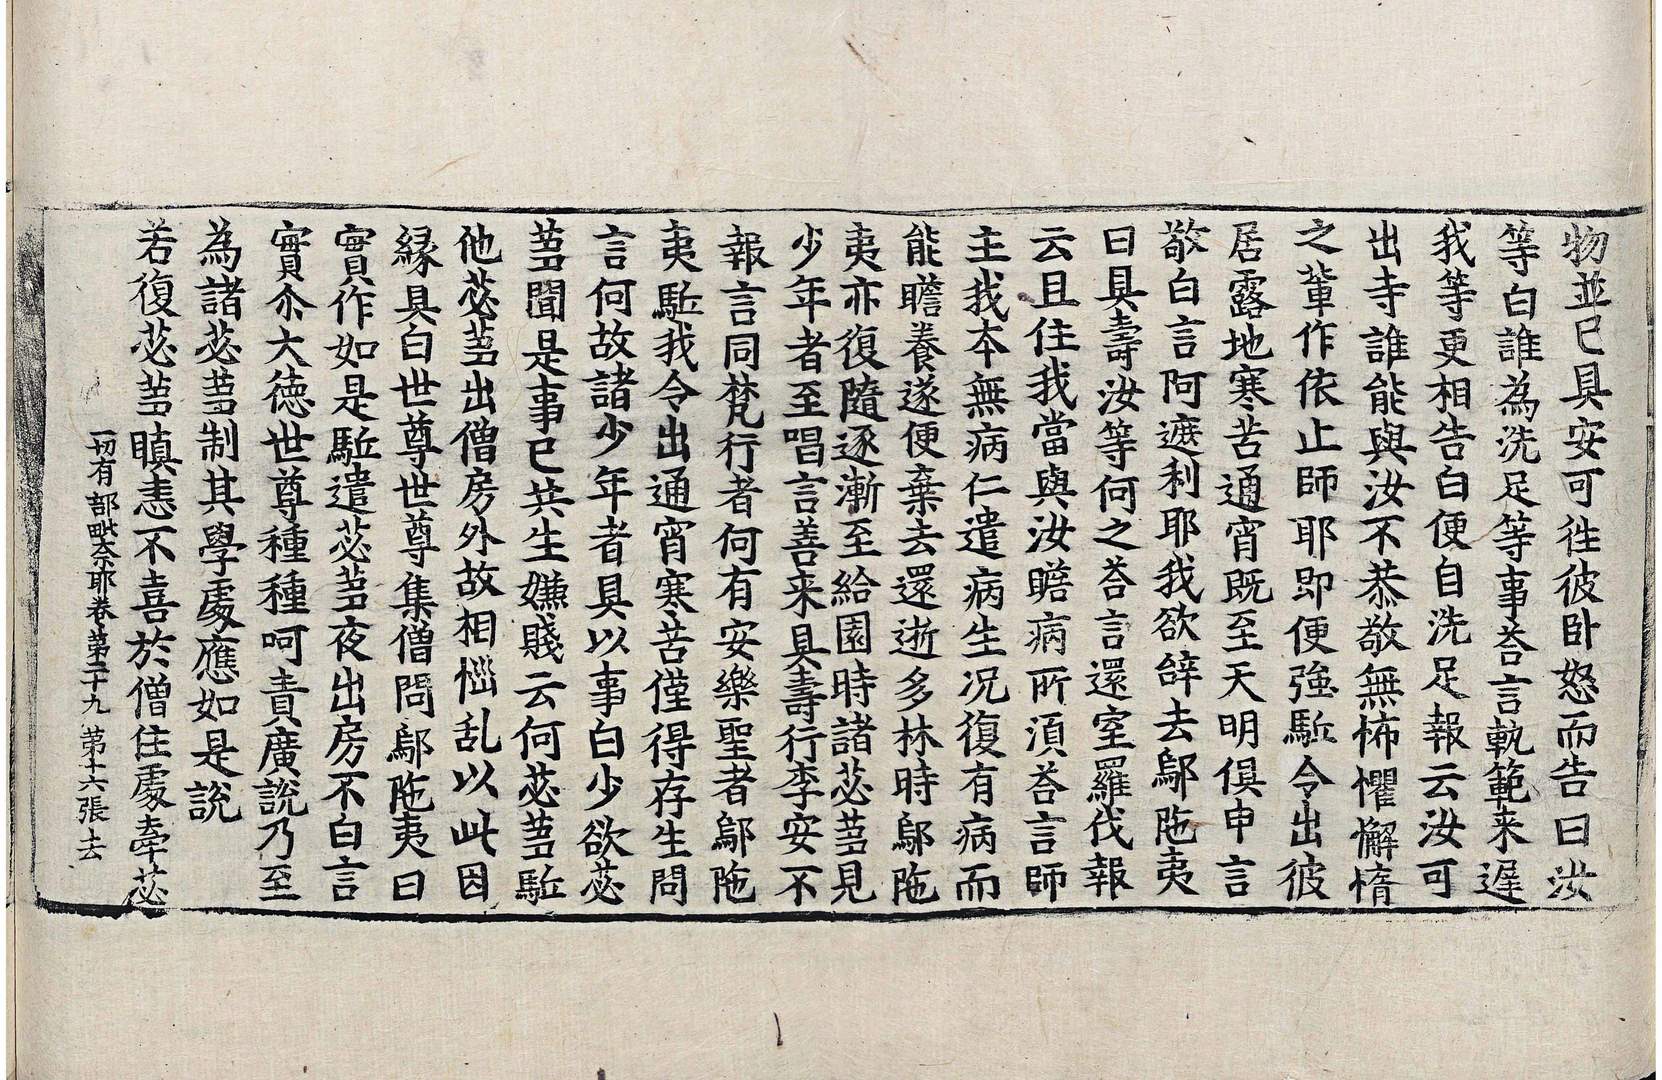 物並已具安可往彼卧怒而告曰汝
等白誰為洗足等事荅言軌範来遲
我等更相告白便自洗足報云汝可
出寺誰能與汝不恭敬無怖懼懈惰
之輩作依止師耶即便強駈令出彼
居露地寒苦通宵既至天明俱申言
敬白言阿遮利耶我欲辞去鄔陁夷
曰具壽汝等何之荅言還室羅伐報
云且住我當與汝瞻病所湏荅言師
主我本無病仁遣病生况復有病而
能瞻養遂便棄去還逝多林時鄔陁
夷亦復隨逐漸至給園時諸苾蒭見
少年者至唱言善来具壽行李安不
報言同梵行者何有安樂聖者鄔陁
夷駈我令出通宵寒苦僅得存生問
言何故諸少年者具以事白少欲苾
蒭聞是事已共生嫌賤云何苾蒭駈
他苾蒭出僧房外故相惱乱以此因
縁具白世尊世尊集僧問鄔陁夷曰
實作如是駈遣苾蒭夜出房不白言
實尒大徳世尊種種呵責廣說乃至
為諸苾蒭制其學處應如是說
若復苾蒭瞋恚不喜於僧住處牽苾
一切有部毗奈耶卷第三十九 第十六張 去